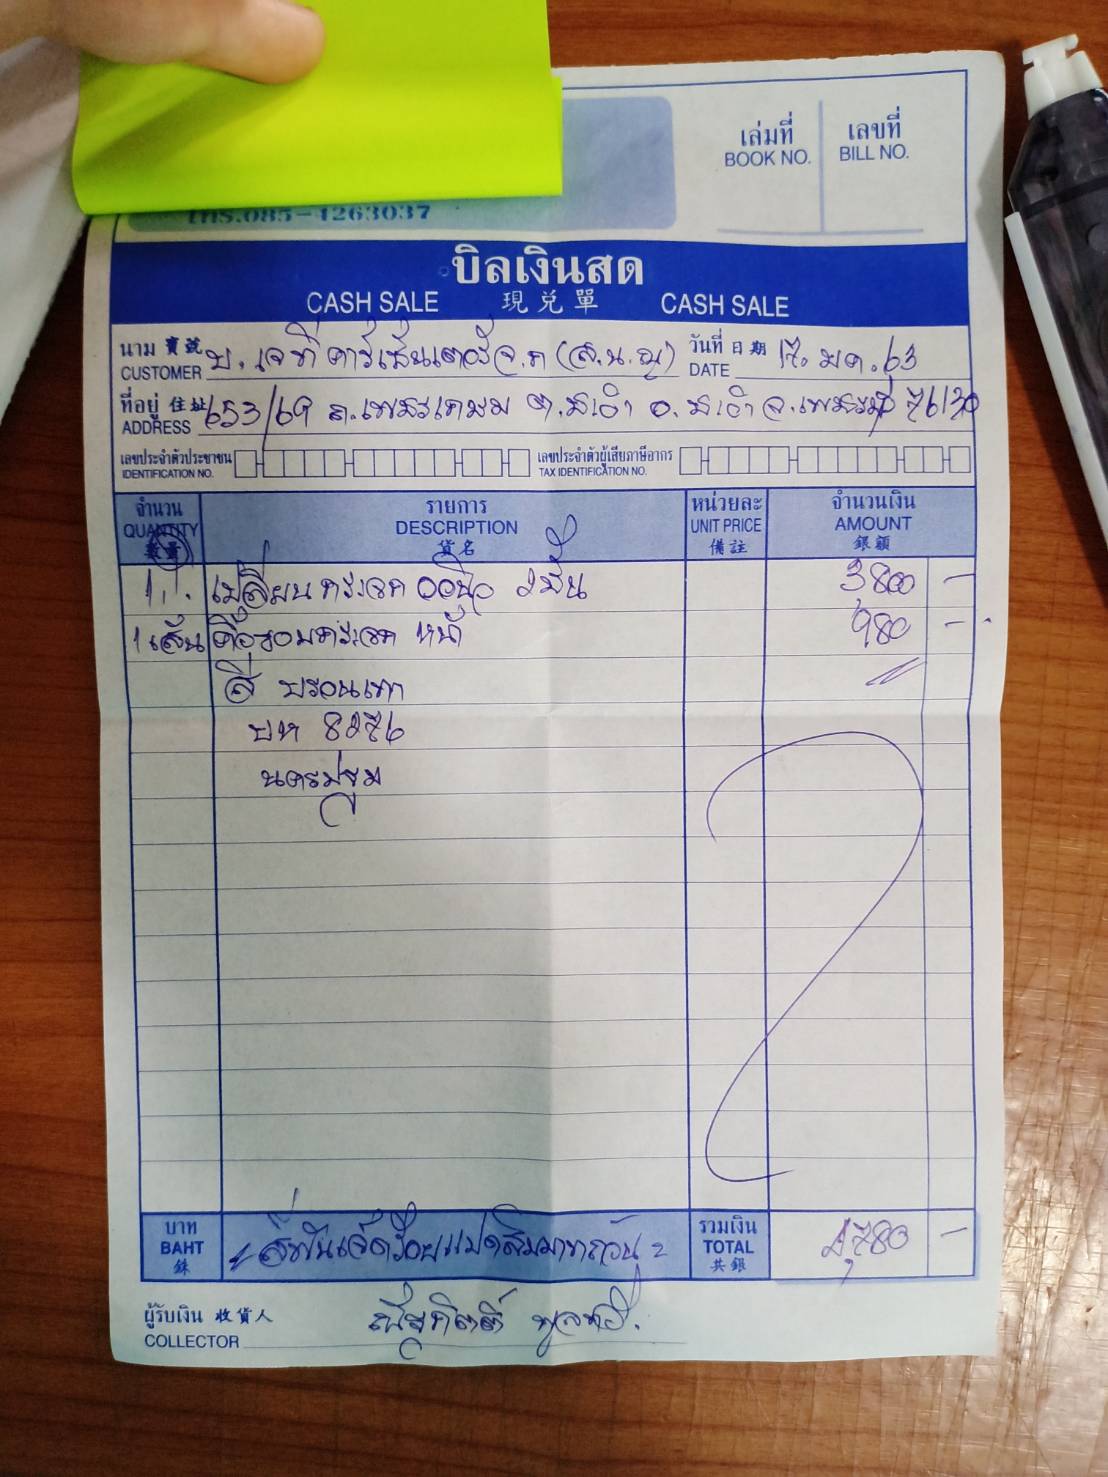 โทร.085-4263037
เล่มที่ เลขที่
BOOK NO. BILL NO.
บิลเงินสด
CASH SALE 現兌單 CASH SALE
นาม 寶號 บ. เจที คาร์เซ็นเตอร์ จ.ก (ส.น.ญ) วันที่ 日期 17. มค. 63
CUSTOMER DATE
ที่อยู่ 住址 653/69 ถ.เพชรเกษม ต.ชะอำ อ.ชะอำ จ.เพชรบุรี 76120
ADDRESS
เลขประจำตัวประชาชน เลขประจำตัวผู้เสียภาษีอากร
IDENTIFICATION NO. TAX IDENTIFICATION NO.
จำนวน รายการ หน่วยละ จำนวนเงิน
QUANTITY DESCRIPTION UNIT PRICE AMOUNT
數量 貨名 備註 銀額
1 เปลี่ยนกระจก 3,800 -
1 เส้น คิ้วขอบกระจก หน้า 980 -
สี บรอนเทา
บท 8276
นครปฐม
บาท สี่พันเจ็ดร้อยแปดสิบบาทถ้วน รวมเงิน 4,780 -
BAHT TOTAL
銖 共銀
ผู้รับเงิน 收貨人
COLLECTOR